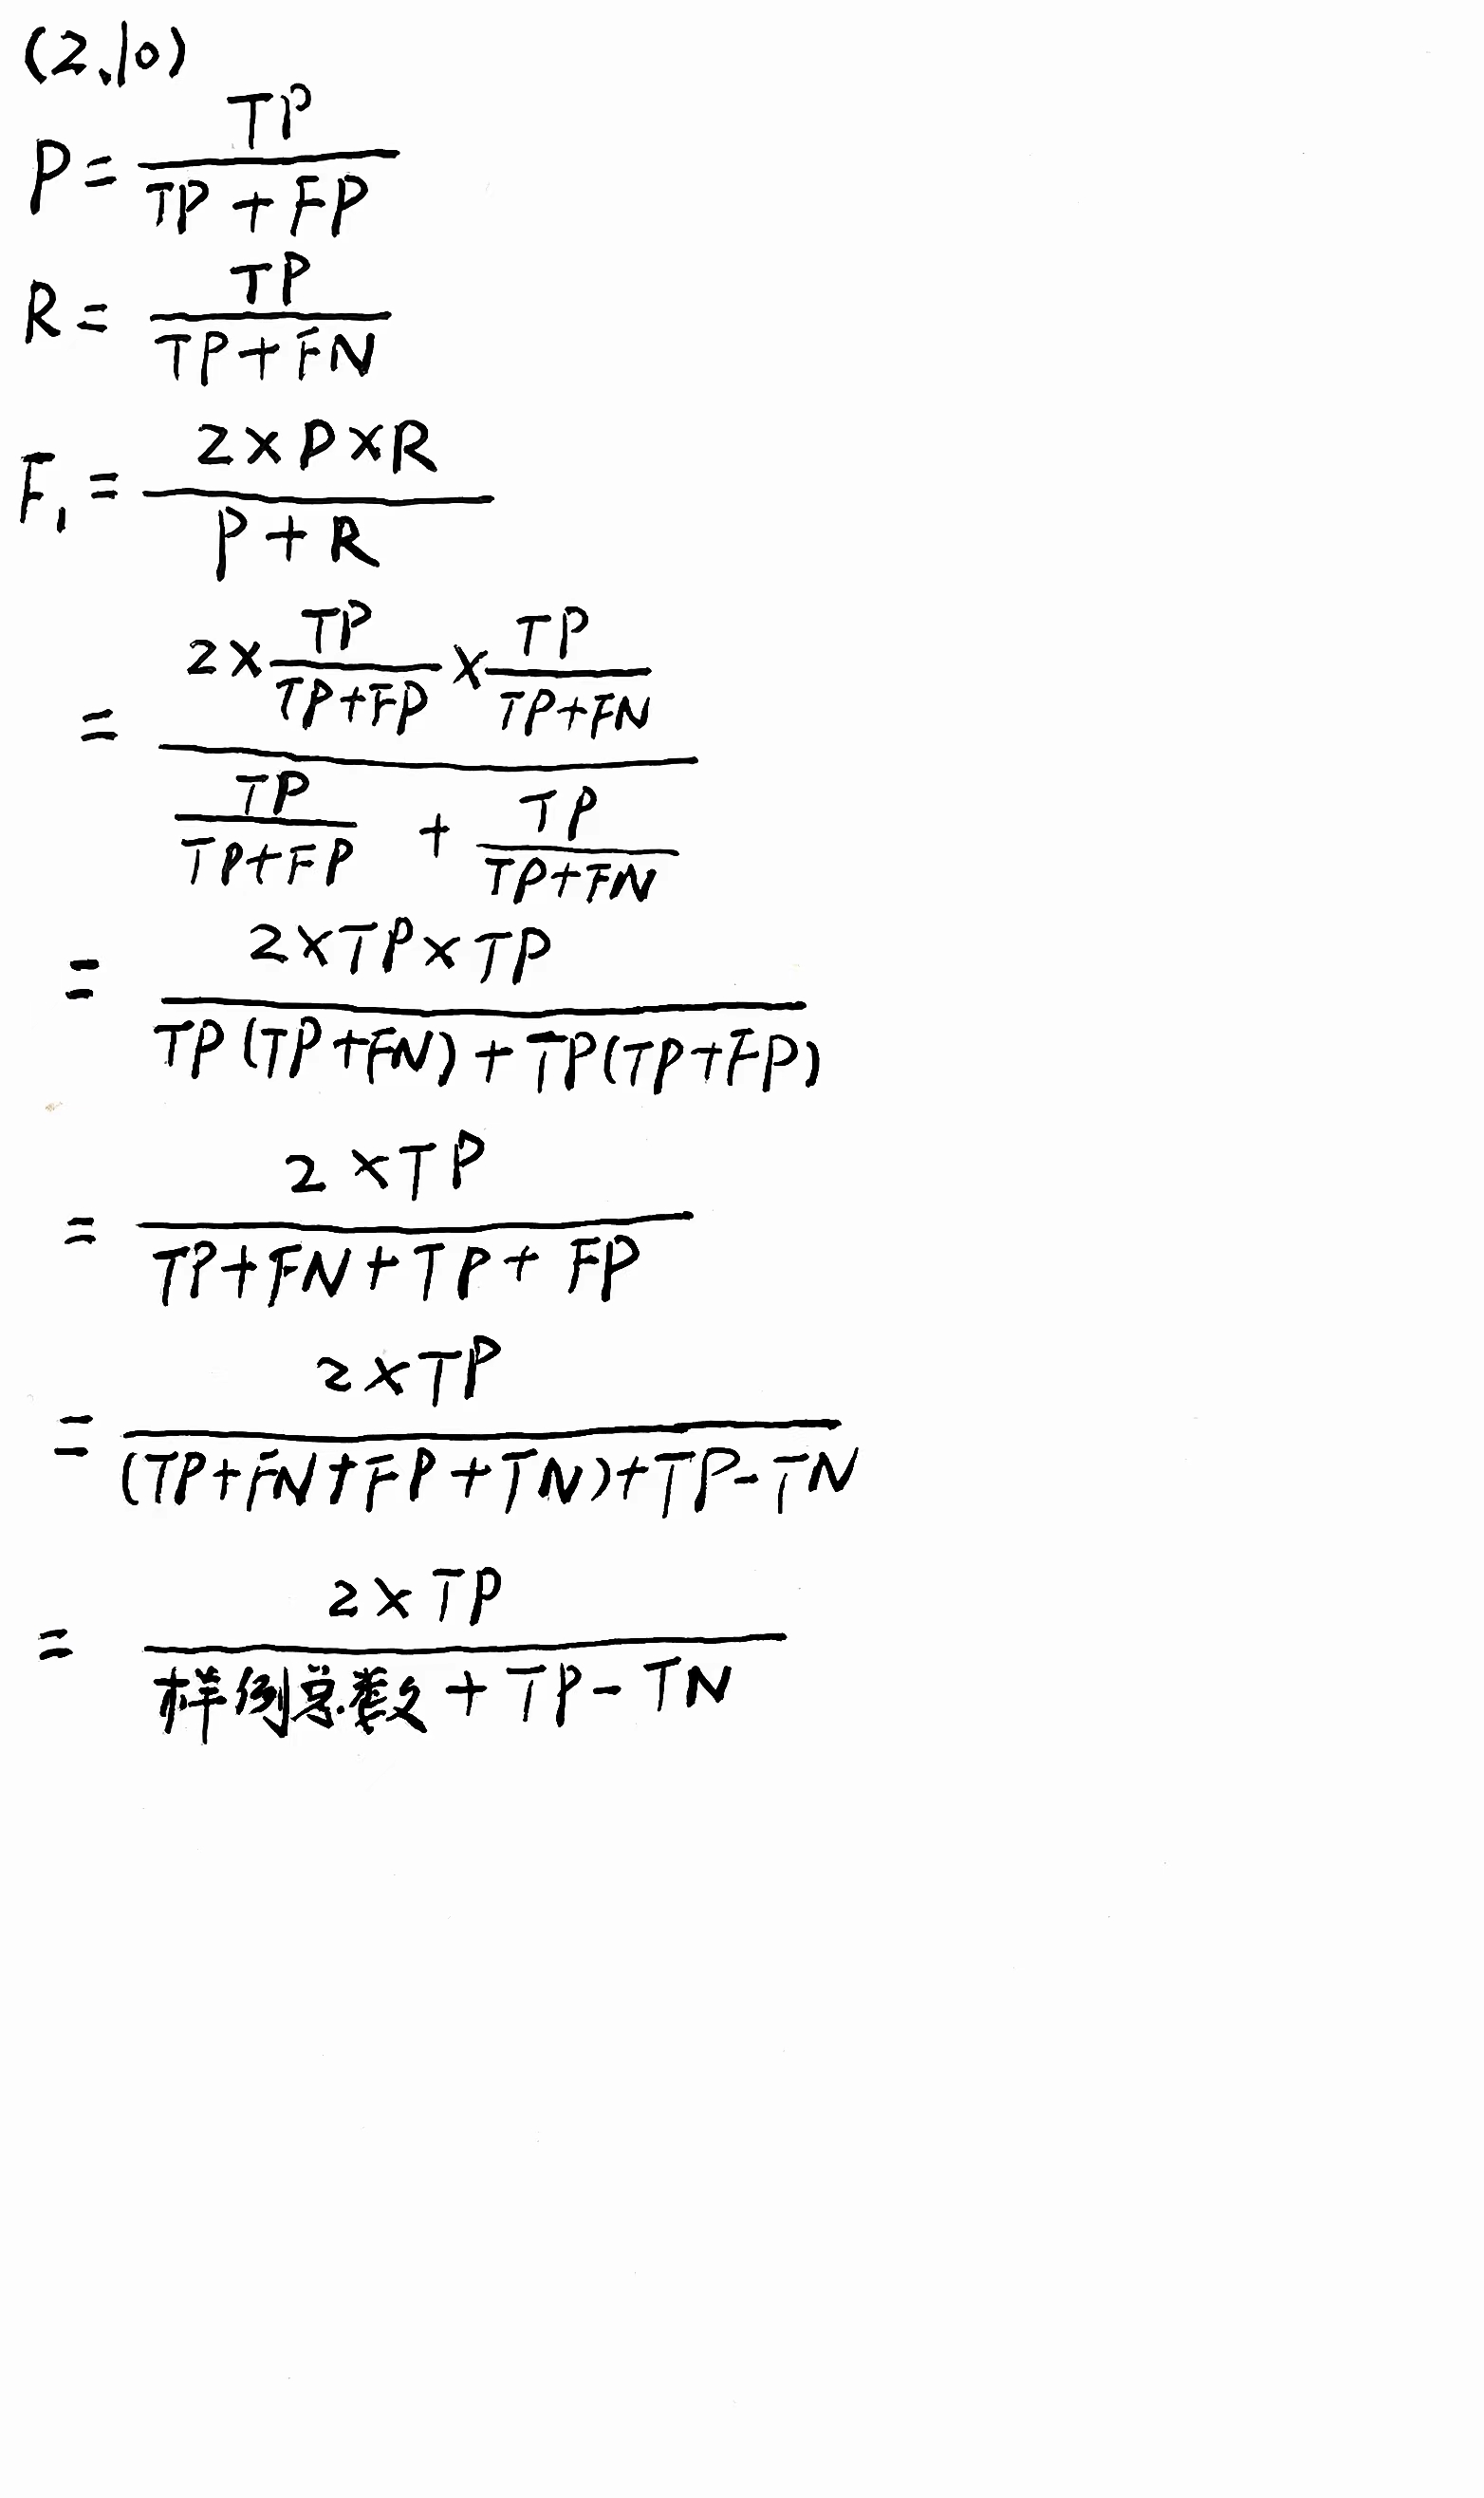 (2.10)
P = \frac{TP}{TP + FP}
R = \frac{TP}{TP + FN}
F_1 = \frac{2 × P × R}{P + R}
= \frac{2 × \frac{TP}{TP + FP} × \frac{TP}{TP + FN}}{\frac{TP}{TP + FP} + \frac{TP}{TP + FN}}
= \frac{2 × TP × TP}{TP(TP + FN) + TP(TP + FP)}
= \frac{2 × TP}{TP + FN + TP + FP}
= \frac{2 × TP}{(TP + FN + FP + TN) + TP - TN}
= \frac{2 × TP}{样例总数 + TP - TN}